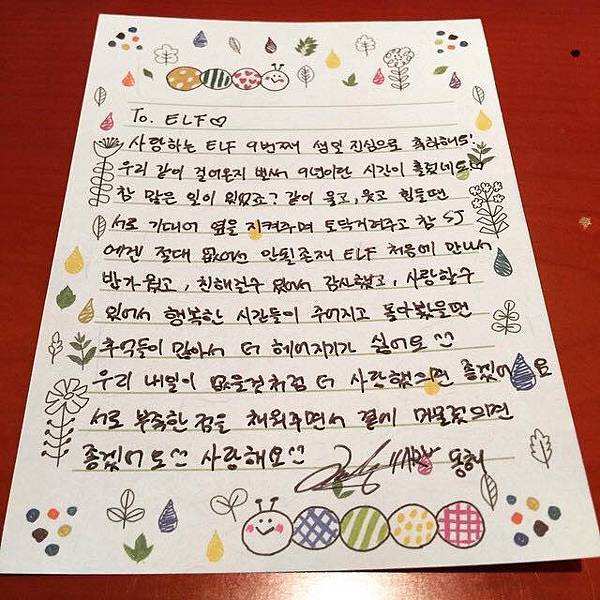 To. ELF♡
사랑하는 ELF 9번째 생일 진심으로 축하해요!
우리 같이 걸어온지 벌써 9년이란 시간이 흘렀네요♡
참 많은 일이 있었죠? 같이 울고, 웃고 힘들땐
서로 기대어 옆을 지켜주며 토닥거려주고 참 SJ
에겐 절대 없어선 안될존재 ELF 처음에 만나서
반가웠고, 친해질수 있어서 감사했고, 사랑할수
있어서 행복한 시간들이 주어지고 돌아봤을땐
추억들이 많아서 더 헤어지기가 싫어요
우리 내일이 없을것처럼 더 사랑했으면 좋겠어요
서로 부족한 점을 채워주면서 곁에 머물렀으면
좋겠어요 사랑해요 동해